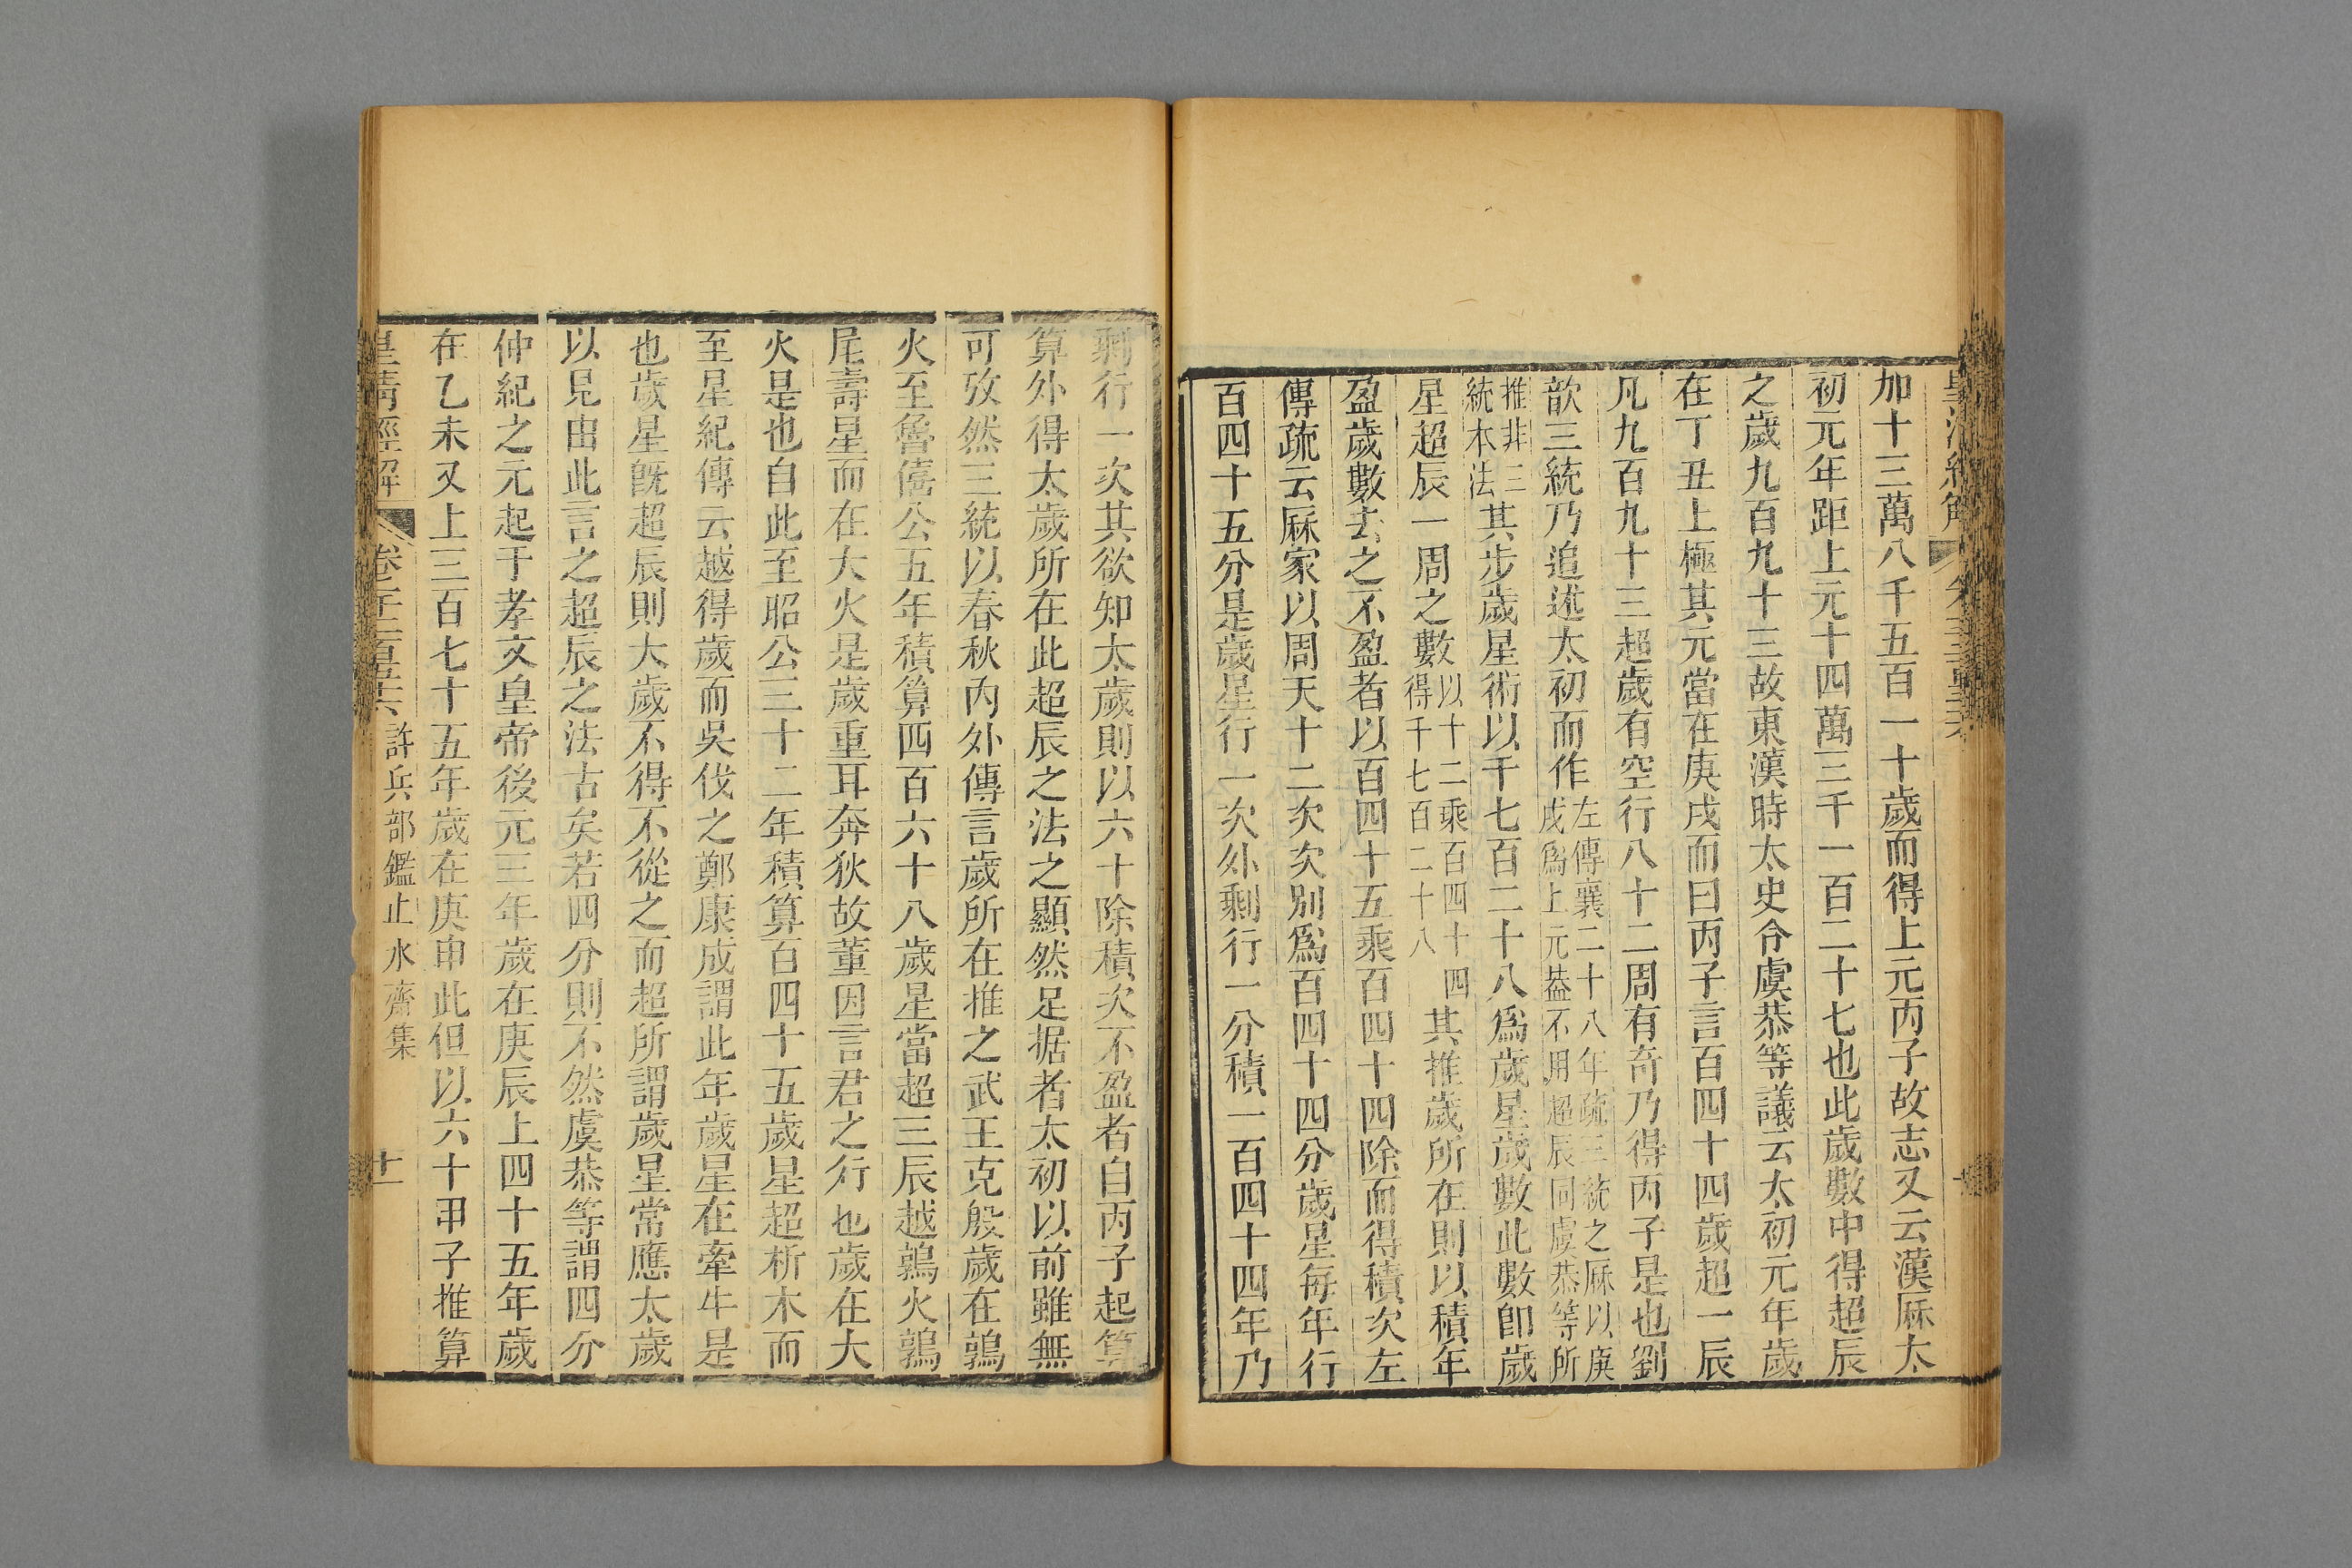 加十三萬八千五百一十歲而得上元丙子故志又云漢厤太
初元年距上元十四萬三千一百二十七也此歲數中得超辰
之歲九百九十三故東漢時太史令虞恭等議云太初元年歲
在丁丑上極其元當在庚戌而曰丙子言百四十四歲超一辰
凡九百九十三超歲有空行八十二周有奇乃得丙子是也劉
歆三統乃追述太初而作左傳襄二十八年疏三統之厤以庚戌爲上元葢不用超辰同虞恭等所
推非三統本法其步歲星術以千七百二十八爲歲星歲數此數卽歲
星超辰一周之數以十二乘百四十四得千七百二十八其推歲所在則以積年
盈歲數去之不盈者以百四十五乘百四十四除而得積次左
傳疏云厤家以周天十二次次別爲百四十四分歲星每年行
百四十五分是歲星行一次外剩行一分積一百四十四年乃
剩行一次其欲知太歲則以六十除積次不盈者自丙子起算
算外得太歲所在此超辰之法之顯然足据者太初以前雖無
可攷然三統以春秋內外傳言歲所在推之武王克殷歲在鶉
火至魯僖公五年積算四百六十八歲星當超三辰越鶉火鶉
尾壽星而在大火是歲重耳奔狄故董因言君之行也歲在大
火是也自此至昭公三十二年積算百四十五歲星超析木而
至星紀傳云越得歲而吳伐之鄭康成謂此年歲星在牽牛是
也歲星旣超辰則大歲不得不從之而超所謂歲星常應太歲
以見由此言之超辰之法古矣若四分則不然虞恭等謂四分
仲紀之元起于孝文皇帝後元三年歲在庚辰上四十五年歲
在乙未又上三百七十五年歲在庚申此但以六十甲子推算
皇清經解 卷 許兵部鑑止水齋集 十一